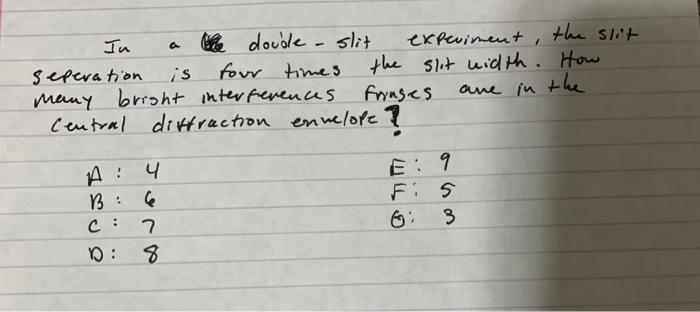 In a double-slit expeviment, the slit
seperation is four times the slit width. How
many bright interferences fringes are in the
Central diffraction envelope?
A: 4
B: 6
C: 7
D: 8
E: 9
F: 5
G: 3